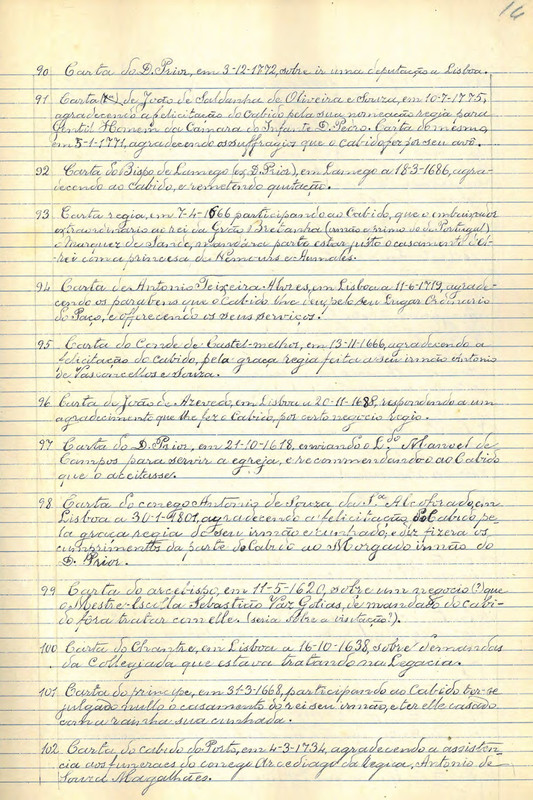 16
90 Carta do D. Prior, em 3-12-1772, sobre ir uma deputação a Lisboa.
91 Carta de João de Saldanha de Oliveira e Souza, em 10-7-1775,
agradecendo a felicitação do Cabido pela sua nomeação regia para
Gentil Homem da Camara do Infante D. Pedro. Carta do mesmo,
em 5-1-1771, agradecendo os suffragios que o cabido fez por seu avô.
92 Carta do Bispo de Lamego (ex D. Prior), em Lamego a 18-3-1686, agra-
decendo ao Cabido, e remetendo quitação.
93 Carta regia, em 7-4-1666 participando ao Cabido, que o embaixador
extraordinario ao rei da Grão Bretanha (irmão e primo do de Portugal)
o Marquez de Sande, mandára parte estar justo o casamento d'el-
rei com a princesa de Nemours e Aumales.
94 Carta de Antonio Teixeira Alvres, em Lisboa a 11-6-1719, agrade-
cendo os parabens que o Cabido lhe deu pelo seu Lugar Ordinario
do Paço, e offerecendo os seus serviços.
95 Carta do Conde de Castel-melhor, em 13-11-1666, agradecendo a
felicitação do Cabido, pela graça regia feita a seu irmão Antonio
de Vasconcellos e Souza.
96 Carta de João de Azevedo, em Lisboa a 20-11-1688, respondendo a um
agradecimento que lhe fez o Cabido, por certo negocio regio.
97 Carta do D. Prior, em 21-10-1618, enviando o L.do Manoel de
Campos para servir a egreja, e recommendando-o ao Cabido
que o aceitasse.
98 Carta do conego Antonio de Souza da S.a Alcoforado, em
Lisboa a 30-1-1801, agradecendo a felicitação do Cabido pe-
la graça regia do seu irmão e cunhado; e diz fizera os
cumprimentos da parte do Cabido ao Morgado irmão do
D. Prior.
99 Carta do arcebispo, em 11-5-1620, sobre um negocio (?) que
o Mestre-Escolla Sebastião Vaz Golias, de mandado do cabi-
do fôra tratar com elle. (seria sobre a visitação?).
100 Carta do Chantre, em Lisboa a 16-10-1638, sobre demandas
da Collegiada que estava tratando na Legacia.
101 Carta do principe, em 31-3-1668, participando ao Cabido ter-se
julgado nullo o casamento do rei seu irmão, e ter elle casado
com a rainha sua cunhada.
102 Carta do cabido do Porto, em 4-3-1734, agradecendo a assisten-
cia aos funeraes do conego Arcediago da Regua, Antonio de
Souza Magalhães.